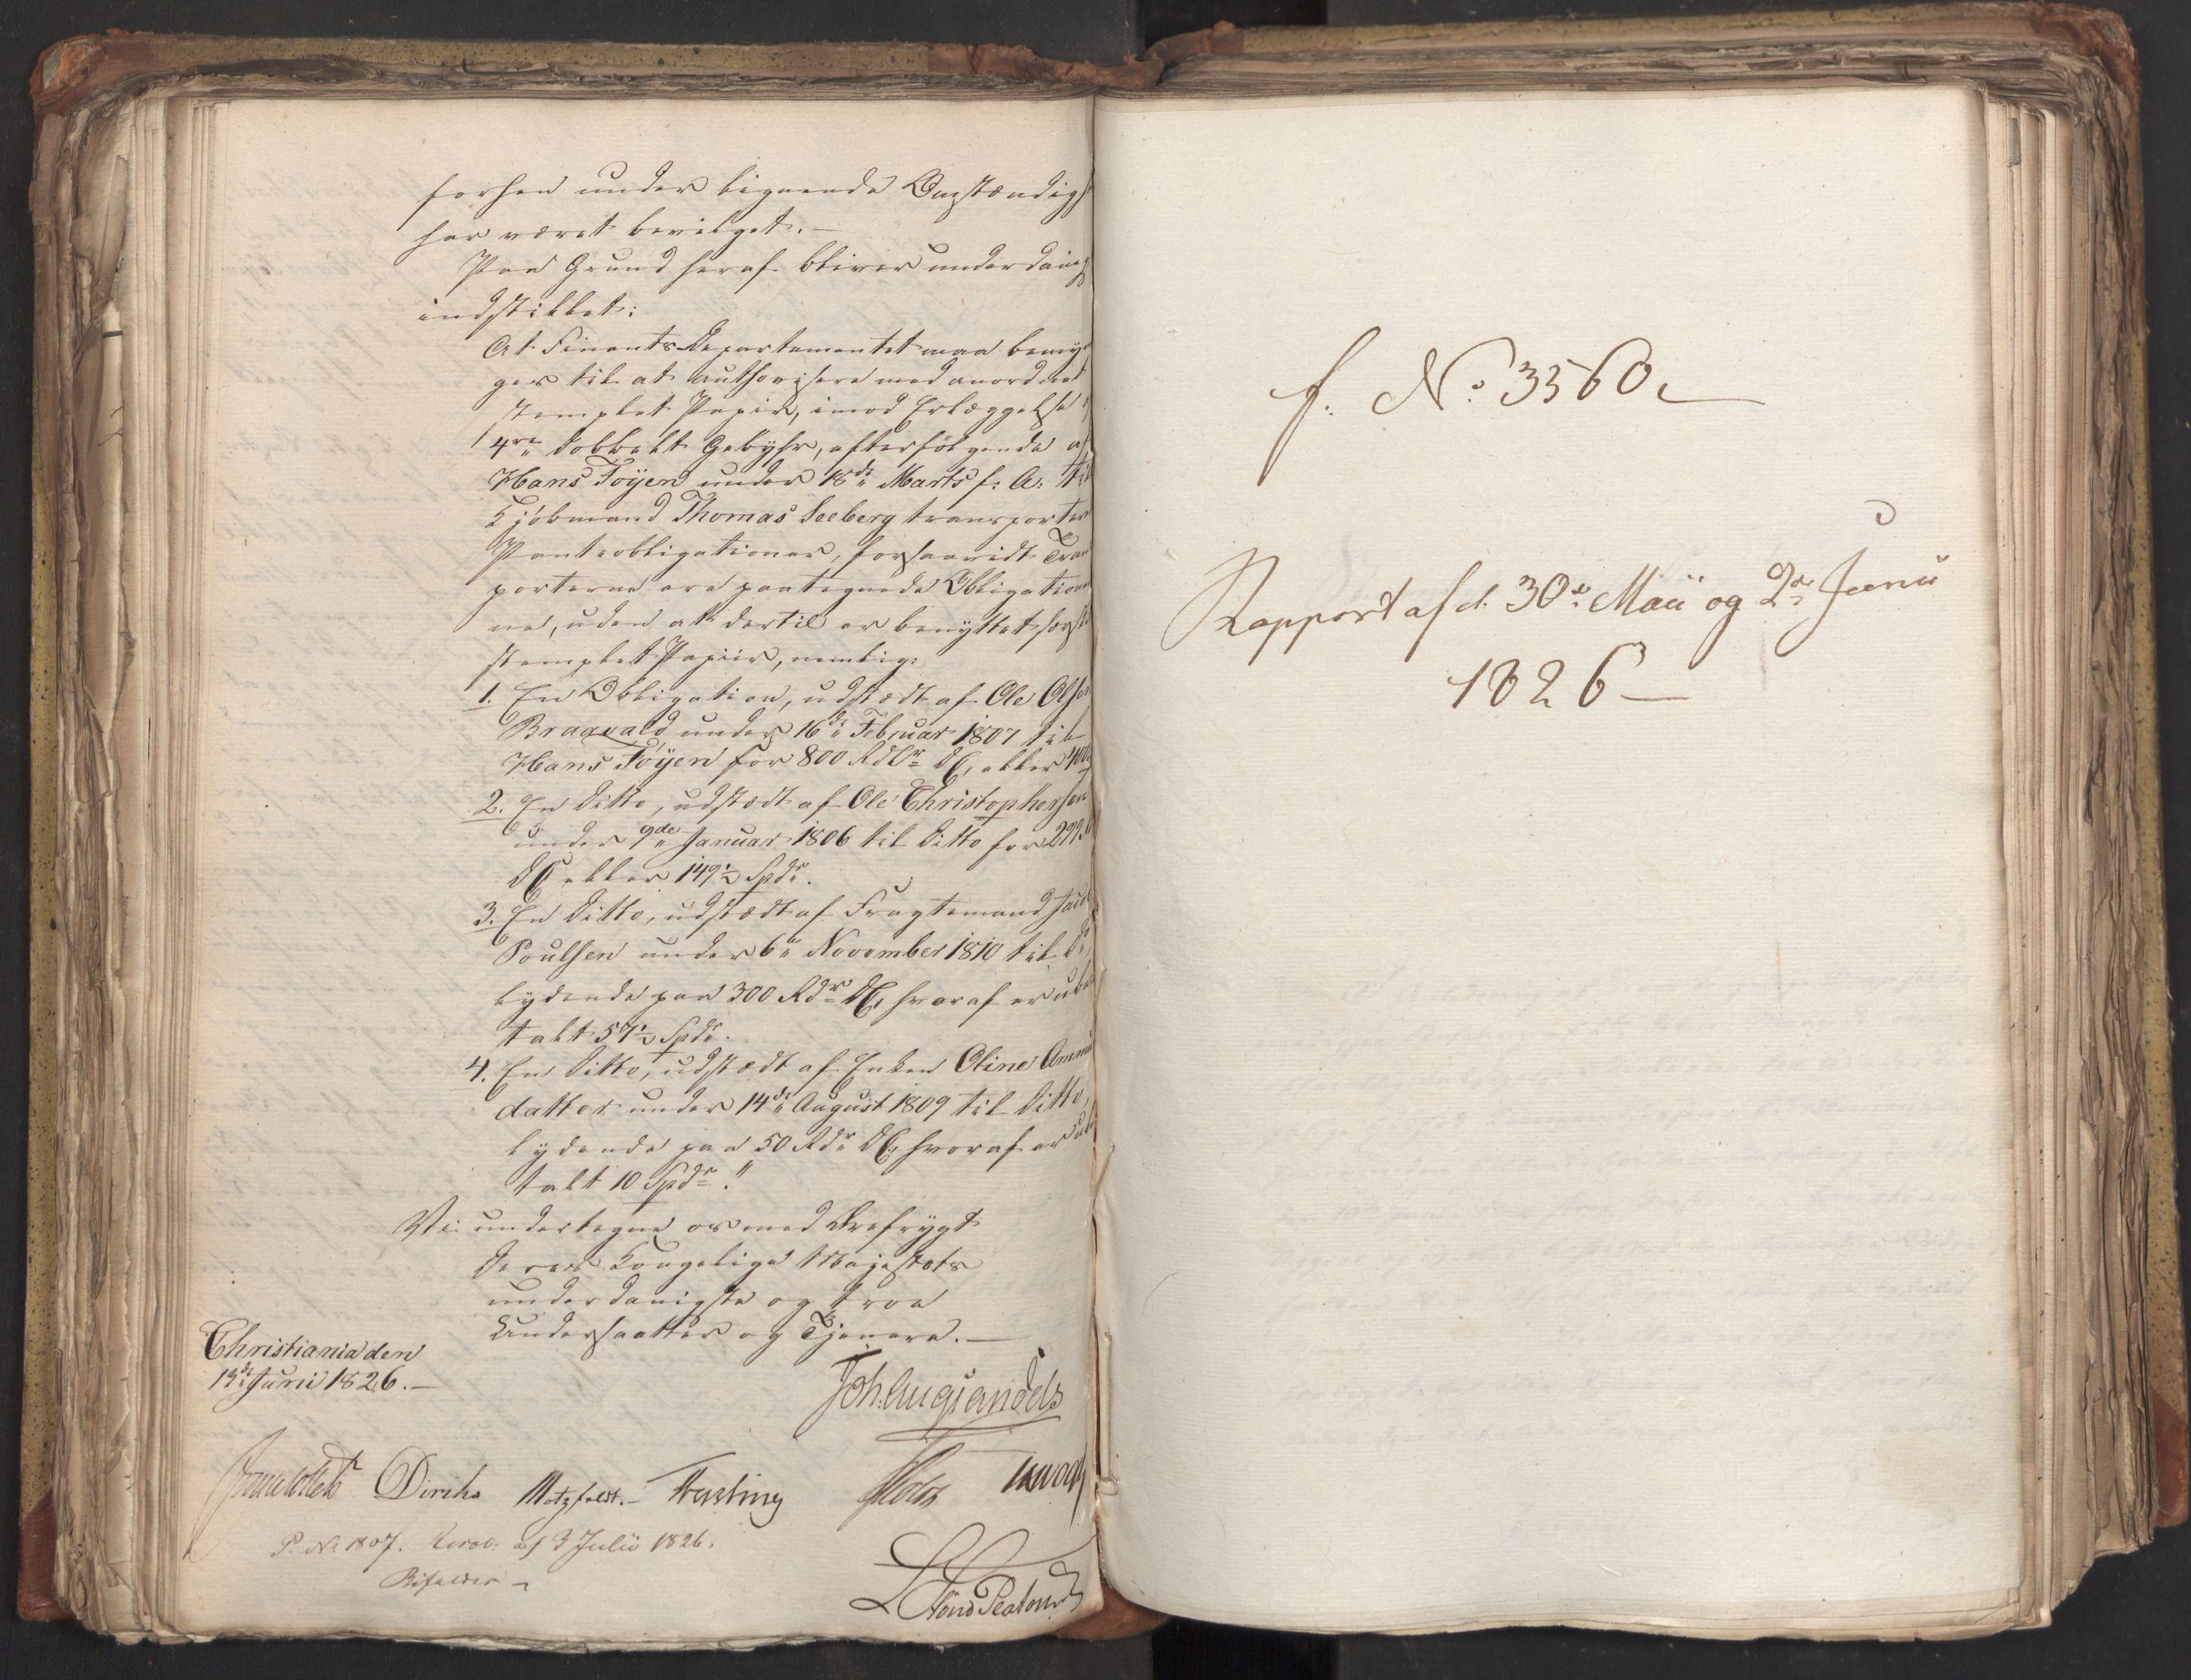 forhen under lignende Omstændigh
har været bevilget. —
Paa Grund heraf bliver underdanigst
indstillet:
At Finants-Departementet maa bemyn
ges til at authorisere med anordnet
stemplet Papir, imod Erlæggelse
4re dobbelt Gebyhr, efterfølgende af
Hans Töyen under 18de Marts f: A: til
Kjöbmand Thomas Seeberg transporter
Pantobligationer, forsaavidt Trans
porterne ere paategnede Obligation
ne, uden at dertil er benyttet særskt
stemplet Papiir, nemlig:
1. En Obligation, udstædt af Ole Olsen
Braavald under 16de Februar 1807 til
Hans Töyen for 800 Rdlr DC, eller 400
2. En Ditto, udstædt af Ole Christophersen
under 9de Januar 1806 til Ditto for 299
DC eller 149½ Spdr.
3. En Ditto, udstædt af Fragtemand
Poulsen under 6te November 1810 til Do,
lydende paa 300 Rdr DC, hvoraf er ube
talt 57½ Spdr.
4. En Ditto, udstædt af Enken Oline
datter under 14de August 1809 til Ditto,
lydende paa 50 Rdr DC, hvoraf er ube
talt 10 Spdr."
Vi undertegne os med Ærefrygt
Deres Kongelige Majestæts
underdanigste og troe
Undersaatter og Tjenere. —
Christiania den
19de Junii 1826. —
Joh: Aug: Sandels
Diriks Motzfeldt. — Treschow
P. No 1807. Resol: af 3 Julii 1826.
Bifaldes —
f. No 3560.
Rapport af d. 30te Maii og 2den Junii
1826 —